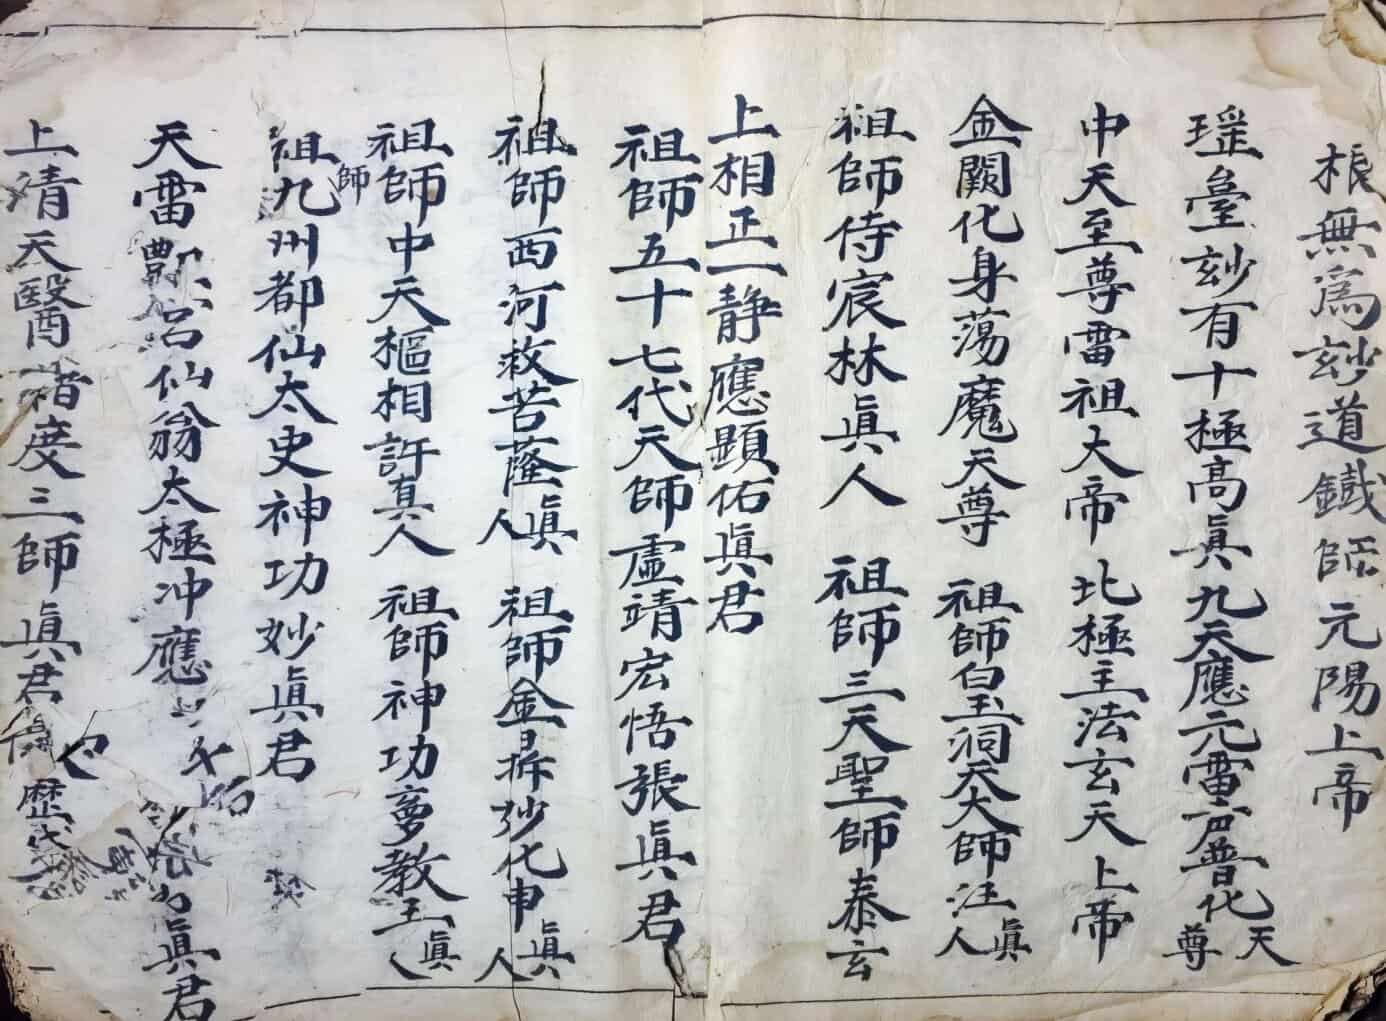 根無為玅道鐵師元陽上帝
瑶臺玅有十極高真九天應元雷声普化天尊
中天至尊雷祖大帝 北極主法玄天上帝
金闕化身蕩魔天尊 祖師白玉洞天大師汪真人
祖師侍宸林真人 祖師三天聖師泰玄
上相正一静應顕佑真君
祖師五十七代天師虛靖宏悟張真君
祖師西河救苦薩真人 祖師金㝷玅化申真人
祖師中天樞相許真人 祖師神功夢教王真人
祖師九州都仙太史神功妙真君
天雷 仙翁太極冲應 真君
上清天醫 度三師真君 歷代